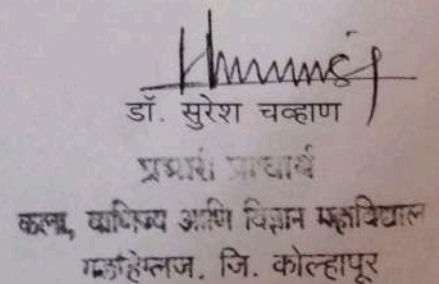 डॉ. सुरेश चव्हाण
प्रभारी प्राचार्य
कला, वाणिज्य आणि विज्ञान महाविद्याल
गडहिंग्लज. जि. कोल्हापूर